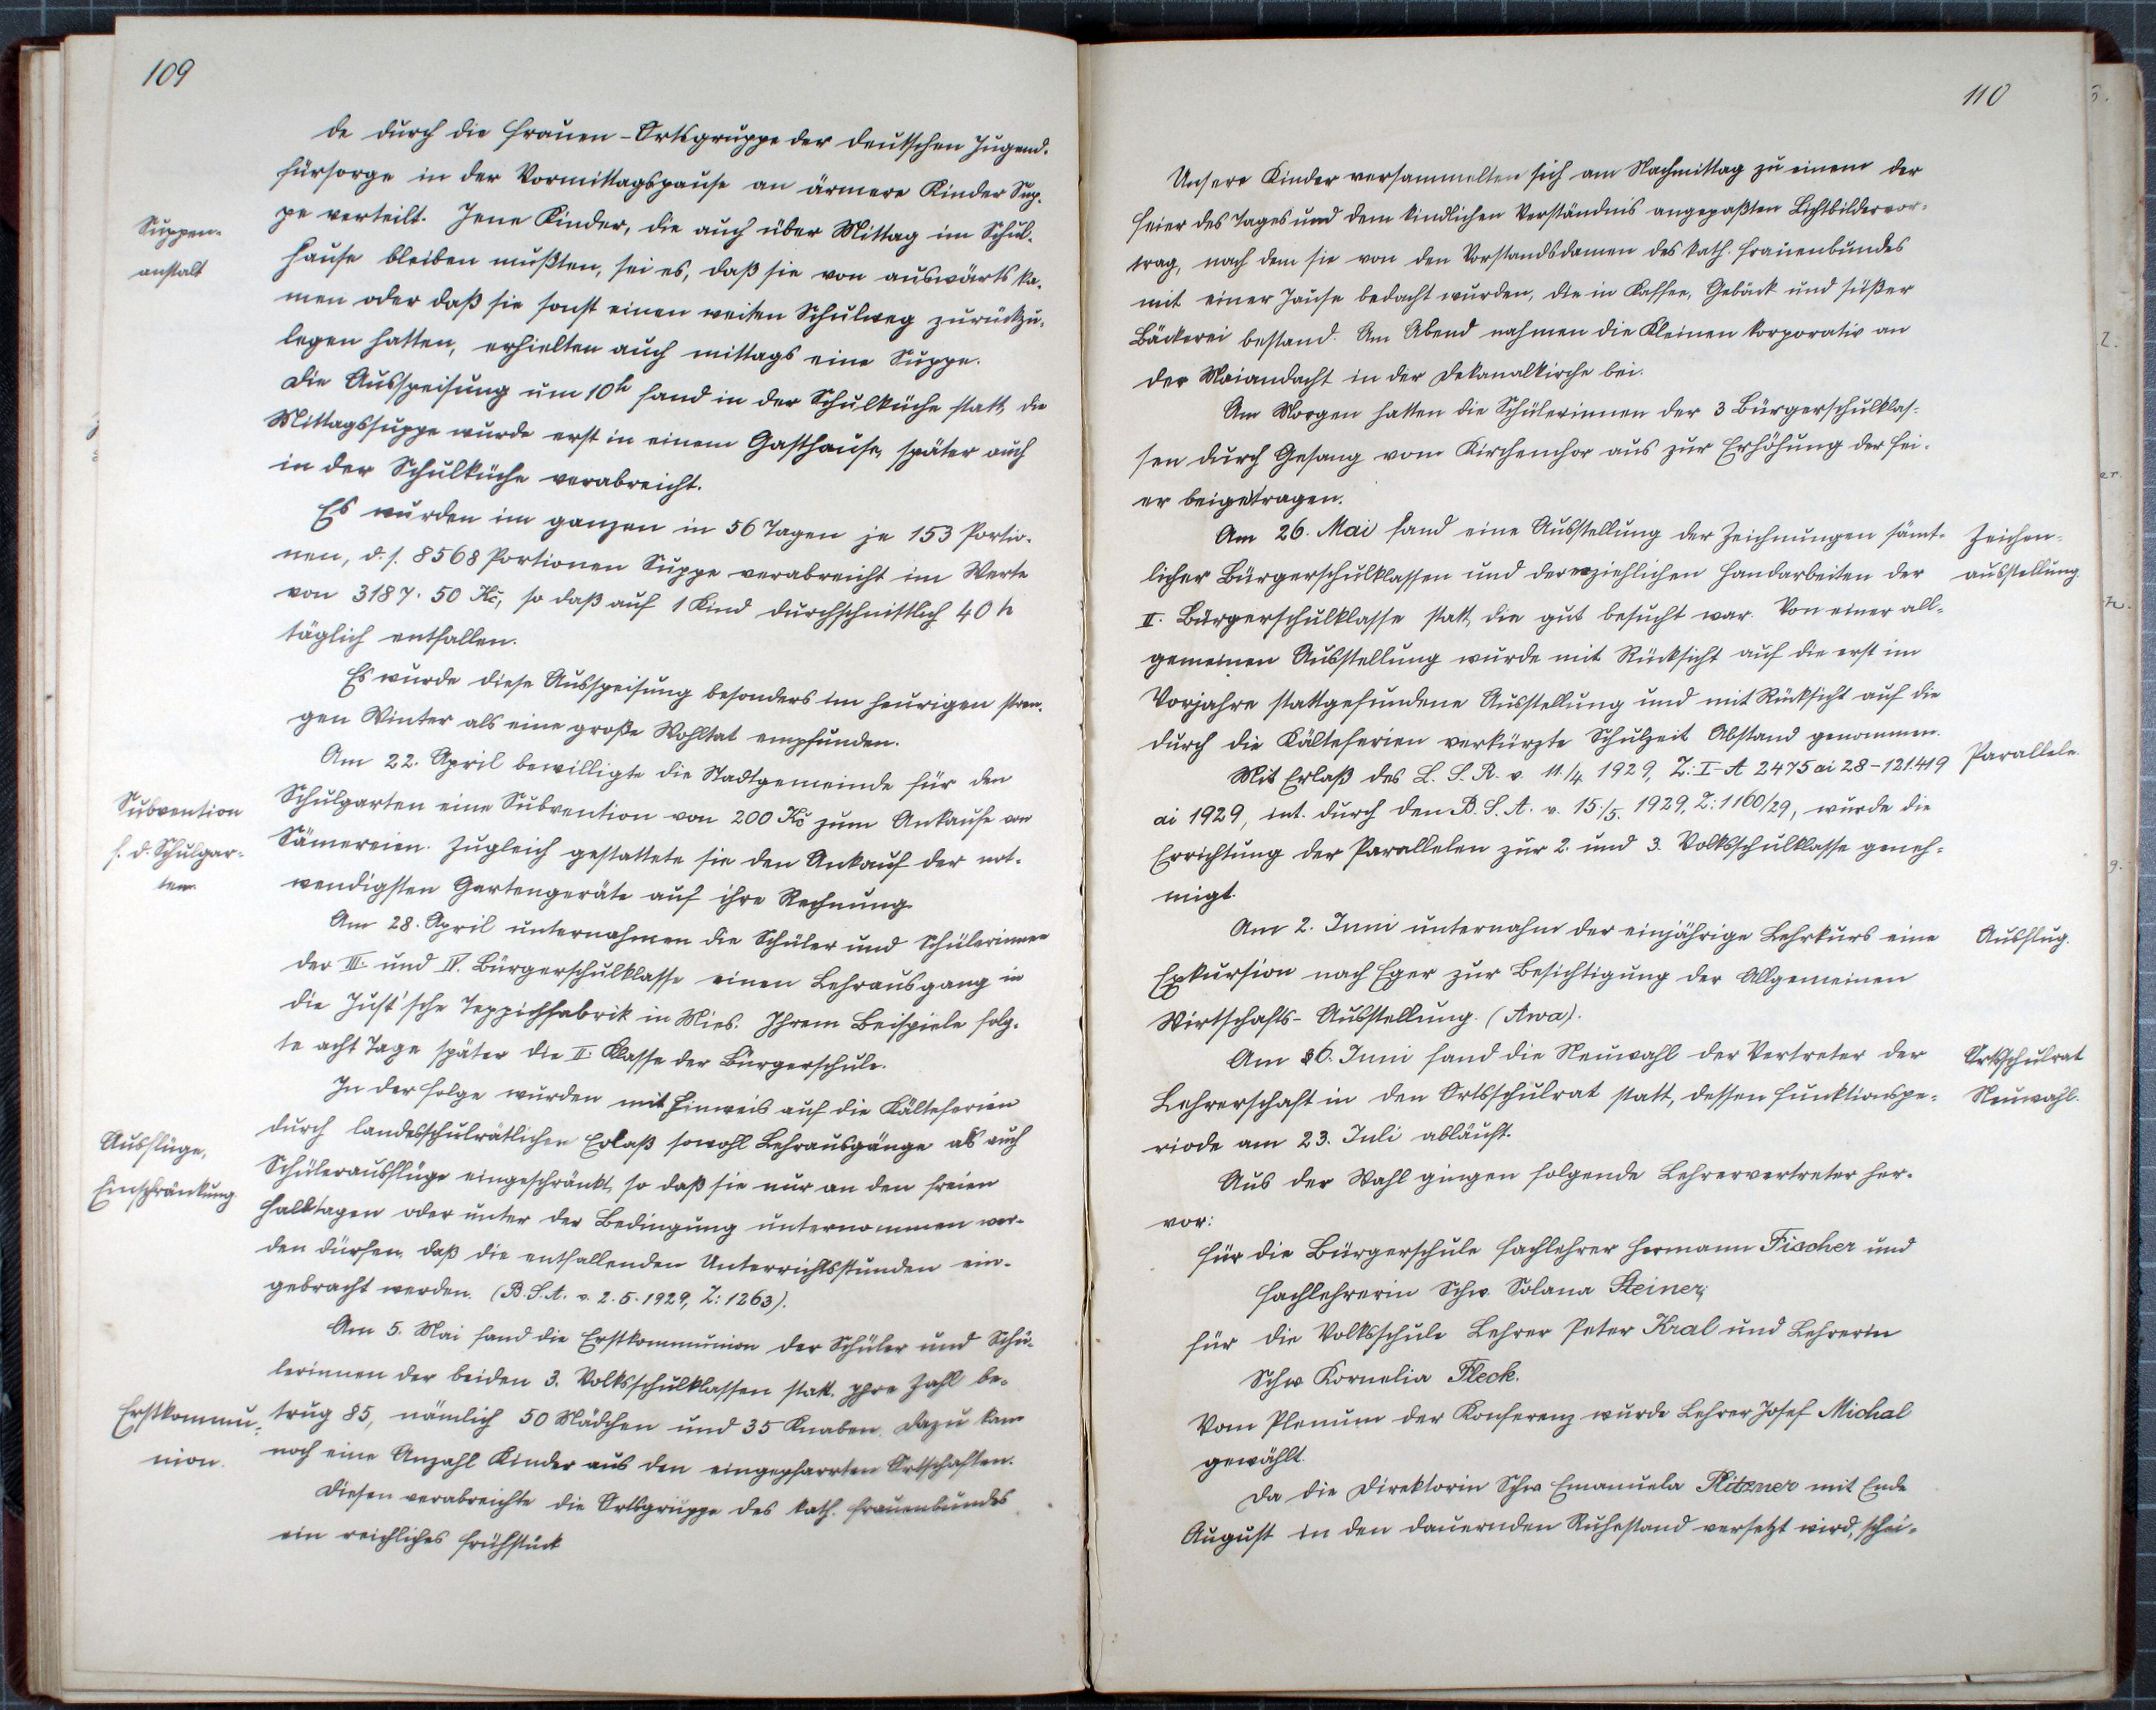 109
de durch die Frauen-Ortsgruppe der deutschen Jugend-
fürsorge in der Vormittagspause an ärmere Kinder Sup-
pe verteilt. Jene Kinder, die auch über Mittag im Schul-
Suppen-
anstalt
hause bleiben mußten, sei es, daß sie von auswärts ka-
men oder daß sie sonst einen weiten Schulweg zurückzu-
legen hatten, erhielten auch mittags eine Suppe.
Die Ausspeisung um 10h fand in der Schulküche statt, die
Mittagssuppe wurde erst in einem Gasthause, später auch
in der Schulküche verabreicht.
Es wurden im ganzen in 56 Tagen je 153 Portio-
nen, d. s. 8568 Portionen Suppe verabreicht im Werte
von 3187.50 Kč, so daß auf 1 Kind durchschnittlich 40 h
täglich entfallen.
Es wurde diese Ausspeisung besonders im heurigen stren-
gen Winter als eine große Wohltat empfunden.
Am 22. April bewilligte die Stadtgemeinde für den
Subvention
f. d. Schulgar-
ten.
Schulgarten eine Subvention von 200 Kč zum Ankaufe von
Sämereien. Zugleich gestattete sie den Ankauf der not-
wendigsten Gartengeräte auf ihre Rechnung.
Am 28. April unternahmen die Schüler und Schülerinnen
der III. und IV. Bürgerschulklasse einen Lehrausgang in
die Just'sche Teppichfabrik in Mies. Ihrem Beispiele folg-
te acht Tage später die II. Klasse der Bürgerschule.
In der Folge wurden mit Hinweis auf die Kälteferien
Ausflüge,
Einschränkung.
durch landesschulrätlichen Erlaß sowohl Lehrausgänge als auch
Schülerausflüge eingeschränkt, so daß sie nur an den freien
Halbtagen oder unter der Bedingung unternommen wer-
den dürfen, daß die entfallenden Unterrichtsstunden ein-
gebracht werden. (B. S. A. v. 2.5.1929, Z: 1263).
Am 5. Mai fand die Erstkommunion der Schüler und Schü-
lerinnen der beiden 3. Volksschulklassen statt. Ihre Zahl be-
Erstkommu-
nion.
trug 85, nämlich 50 Mädchen und 35 Knaben. Dazu kam
noch eine Anzahl Kinder aus den eingepfarrten Ortschaften.
Diesen verabreichte die Ortsgruppe des kath. Frauenbundes
ein reichliches Frühstück
110
Unsere Kinder versammelten sich am Nachmittag zu einem der
Feier des Tages und dem kindlichen Verständnis angepaßten Lichtbildervor-
trag, nach dem sie von den Vorstandsdamen des kath. Frauenbundes
mit einer Jause bedacht wurden, die in Kaffee, Gebäck und süßer
Bäckerei bestand. Am Abend nahmen die Kleinen korporativ an
der Maiandacht in der Dekanalkirche bei.
Am Morgen hatten die Schülerinnen der 3 Bürgerschulklas-
sen durch Gesang vom Kirchenchor aus zur Erhöhung der Fei-
er beigetragen.
Am 26. Mai fand eine Ausstellung der Zeichnungen sämt-
Zeichen-
ausstellung.
licher Bürgerschulklassen und der weiblichen Handarbeiten der
II. Bürgerschulklasse statt, die gut besucht war. Von einer all-
gemeinen Ausstellung wurde mit Rücksicht auf die erst im
Vorjahre stattgefundene Ausstellung und mit Rücksicht auf die
durch die Kälteferien verkürzte Schulzeit Abstand genommen.
Mit Erlaß des L. S. R. v. 11./4 1929, Z: I-A 2475 ai 28-121419
Parallele
ai 1929, int. durch den B. S. A. v. 15./5. 1929, Z: 1160/29, wurde die
Errichtung der Parallelen zur 2. und 3. Volksschulklasse geneh-
migt.
Am 2. Juni unternahm der einjährige Lehrkurs eine
Ausflug.
Exkursion nach Eger zur Besichtigung der Allgemeinen
Wirtschafts-Ausstellung. (Awa).
Am 6. Juni fand die Neuwahl der Vertreter der
Ortsschulrat
Neuwahl.
Lehrerschaft in den Ortsschulrat statt, dessen Funktionspe-
riode am 23. Juli abläuft.
Aus der Wahl gingen folgende Lehrervertreter her-
vor:
für die Bürgerschule Fachlehrer Hermann Fischer und
Fachlehrerin Schw. Solana Steiner;
für die Volksschule Lehrer Peter Kral und Lehrerin
Schw. Kornelia Fleck.
Vom Plenum der Konferenz wurde Lehrer Josef Michal
gewählt.
Da die Direktorin Schw. Emanuela Plitzner mit Ende
August in den dauernden Ruhestand versetzt wird, schei-